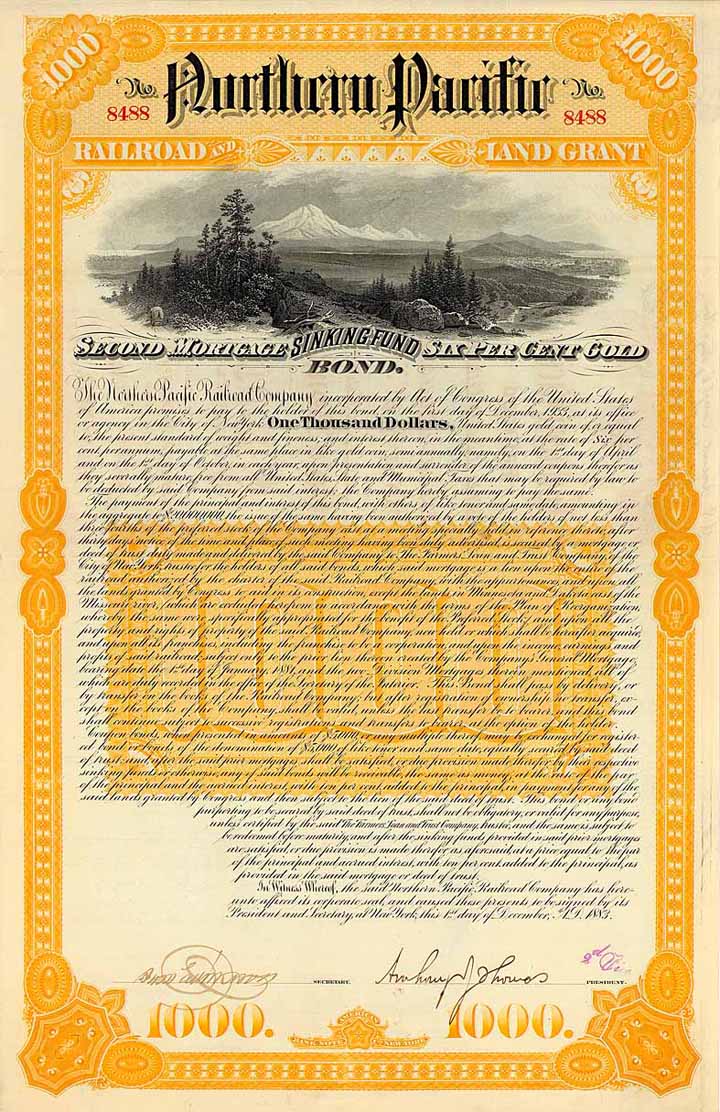 1000
1000
No. Northern Pacific No.
8488 8488
RAILROAD AND LAND GRANT
SECOND MORTGAGE SINKING FUND SIX PER CENT GOLD
BOND.
The Northern Pacific Railroad Company incorporated by Act of Congress of the United States
of America promises to pay to the holder of this bond, on the first day of December, 1933, at its office
or agency in the City of New York One Thousand Dollars, United States gold coin of, or equal
to, the present standard of weight and fineness, and interest thereon, in the meantime, at the rate of six per
cent per annum, payable at the same place in like gold coin, semi annually, namely, on the 1st day of April
and on the 1st day of October, in each year, upon presentation and surrender of the annexed coupons therefor as
they severally mature, free from all United States, State and Municipal Taxes that may be required by law to
be deducted by said Company from said interest, the Company hereby assuming to pay the same.
The payment of the principal and interest of this bond, with others of like tenor and same date, amounting in
the aggregate to $20,000,000, the issue of the same having been authorized by a vote of the holders of not less than
three fourths of the preferred stock of said Company at a meeting specially called in reference thereto, after
thirty days notice of the time and place of such meeting having been duly published, is secured by a mortgage or
deed of trust duly made and delivered by the said Company to The Farmers Loan and Trust Company, of the
City of New York, trustee for the holders of the said bonds, which said mortgage is a lien upon the whole of the
railroad authorized by the charter of the said Railroad Company, with the appurtenances, and upon all
the lands granted by Congress to aid in its construction, except the lands in Minnesota and Dakota east of the
Missouri river, which are excluded therefrom in accordance with the terms of the Plan of Reorganization,
whereby the same were specifically appropriated for the benefit of the Preferred Stock; and upon all the
property and rights of property of the said Railroad Company, now held or which shall be hereafter acquired,
and upon all its franchises, including the franchise to be a corporation, and upon the income, earnings and
profits of said railroad, subject to the prior lien thereon created by the Company's General Mortgage,
bearing date the 1st day of January, 1881, and the two Division Mortgages therein mentioned, all of
which are duly recorded in the office of the Secretary of the Interior. This Bond shall pass by delivery, or
by transfer on the books of the Railroad Company, but after registration of ownership no transfer, ex-
cept on the books of the Company, shall be valid, unless the last transfer be to bearer, and this bond
shall continue subject to successive registrations and transfers to bearer, at the option of the holder.
Coupon bonds, when presented in sums of $5,000 or any multiple thereof, may be exchanged for register-
ed bonds of the denomination of $5,000 of like tenor and same date, equally secured by said deed
of trust. And after the said prior mortgages shall be satisfied, or due provision made therefor by their respective
sinking funds or otherwise, any of said bonds will be receivable, the same as money, at the par
of the principal and accrued interest, with ten per cent added to the principal, in payment for any of the
said lands granted by Congress and then subject to the lien of the said deed of trust. This bond or any bond
purporting to be secured by said deed of trust, shall not be obligatory, or valid for any purpose,
unless certified by the said The Farmers Loan and Trust Company, trustee, and the same is subject to
be redeemed before maturity, and after the sinking fund, provided in said prior mortgages
are satisfied, or due provision is made therefor as aforesaid, at a price equal to the par
of the principal and accrued interest, with ten per cent, added to the principal, as
provided in the said mortgage or deed of trust.
In Witness Whereof, the said Northern Pacific Railroad Company has here-
unto affixed its corporate seal, and caused these presents to be signed by its
President and Secretary, at New York, this 1st day of December, A.D. 1883.
2d Vice
SECRETARY. PRESIDENT.
1000. 1000.
AMERICAN
BANK NOTE CO. NEW YORK